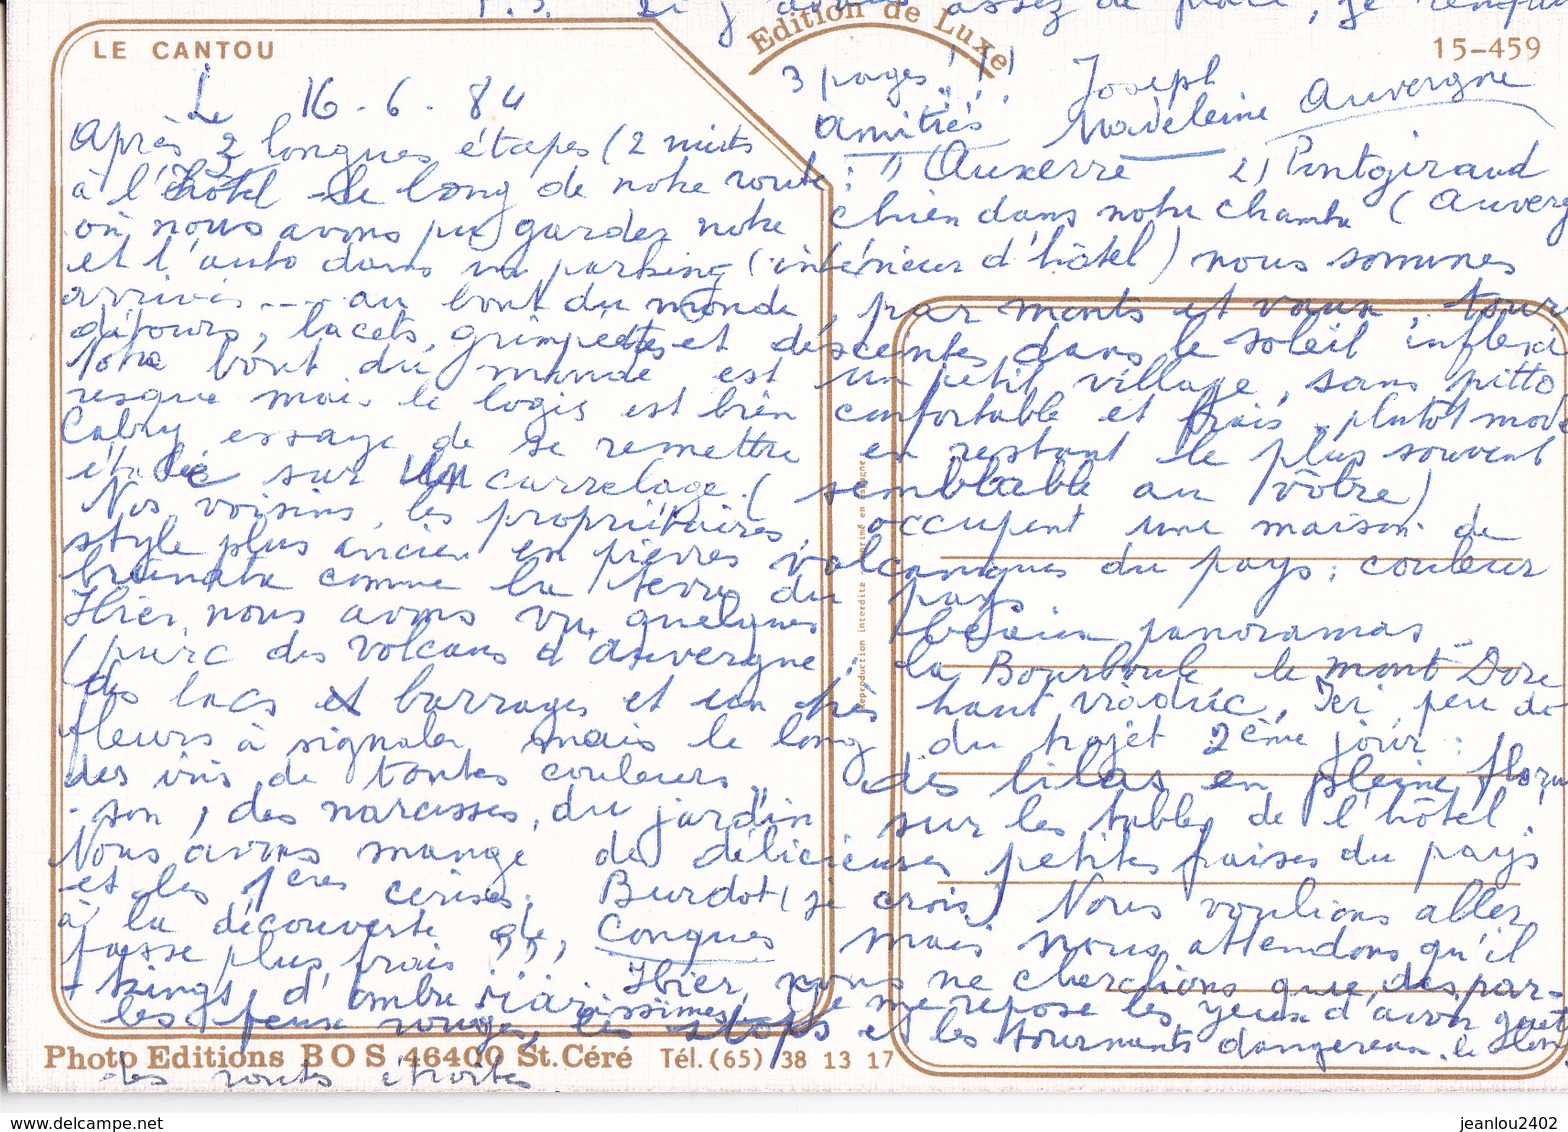 P.S. Si j'avais assez de place, je
LE CANTOU
Edition de Luxe
15-459
Le 16-6-84
3 pages!!!
Amitiés
Joseph
Madeleine
Auvergne
Après 2 longues étapes (2 nuits
à l'hôtel le long de notre route : 1) Auxerre 2) Pontgiraud
où nous avons pu garder notre chien dans notre chambre (Auverg
et l'auto dans un parking (intérieur d'hôtel) nous sommes
arrivés --- au bout du monde, par monts et vaux, tour
détours, lacets, grimpettes et descentes, dans le soleil inflexi
Notre bout du monde est un petit village, sans pitto
resque mais le logis est bien confortable et frais, plutôt mode
essaye de se remettre en restant le plus souvent
étalé sur carrelage. (semblable au vôtre)
Nos voisins, les propriétaires, occupent une maison de
style plus ancien en pierres volcaniques du pays : couleur
brunâtre comme la terre du pays.
Hier, nous avons vu quelques beaux panoramas
(parc des volcans d'auvergne : la Bourboule le mont Dore
des lacs et barrages et un très haut viaduc, Ici, peu de
fleurs à signaler mais le long du trajet 2ème jour :
des iris de toutes couleurs, des lilas en pleine florai
son, des narcisses, du jardin sur les tables de l'hôtel!
Nous avons mangé de délicieuses petites fraises du pays
et les 1ères cerises. Burdot (je crois) Nous voulions aller
à la découverte de, Conques mais nous attendons qu'il
fasse plus frais!!! Hier, nous ne cherchions que des par-
kings d'ombre rarissimes. Je me repose les yeux d'avoir guet
les feux rouges, les stops et les tournants dangereux.
des routes étroites
Reproduction interdite
Photo Editions BOS 46400 St.Céré Tél.(65) 38 13 17
delcampe.net
jeanlou2402